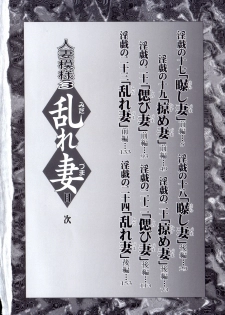 淫戯の十七「曝し妻」前編
淫戯の十八「曝し妻」後編
淫戯の十九「掠め妻」前編
淫戯の二十「掠め妻」後編
淫戯の二十一「偲び妻」前編
淫戯の二十二「偲び妻」後編
淫戯の二十三「乱れ妻」前編
淫戯の二十四「乱れ妻」後編
人妻模様3
乱れ妻
目次